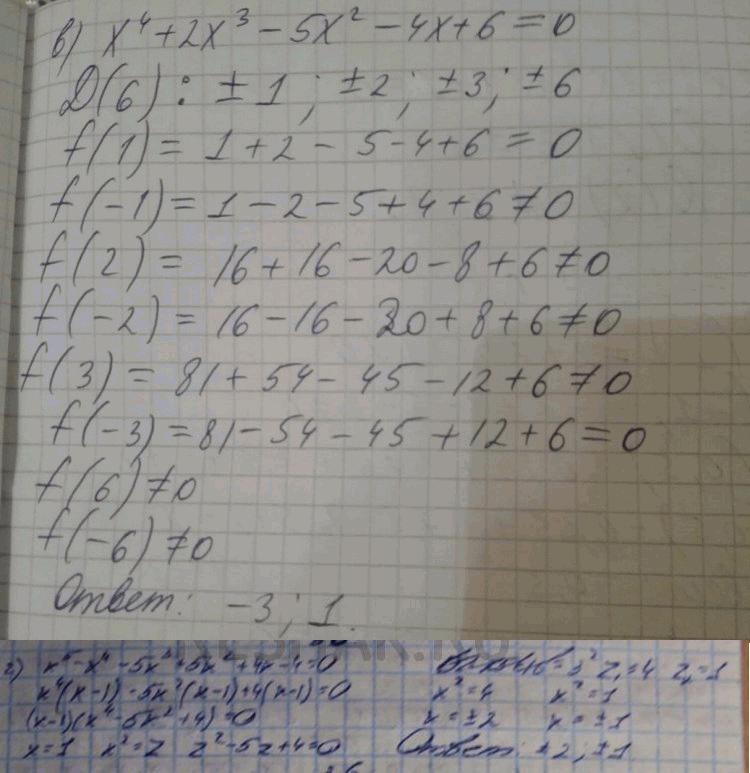 в) x⁴+2x³-5x²-4x+6=0
D(6): ±1; ±2; ±3; ±6
f(1)= 1+2-5-4+6=0
f(-1)=1-2-5+4+6≠0
f(2)= 16+16-20-8+6≠0
f(-2)=16-16-20+8+6≠0
f(3)= 81+54-45-12+6≠0
f(-3)=81-54-45+12+6=0
f(6)≠0
f(-6)≠0
Ответ: -3; 1.
г) x⁵-x⁴-5x³+5x²+4x-4=0
x⁴(x-1)-5x²(x-1)+4(x-1)=0
(x-1)(x⁴-5x²+4)=0
x=1 x²=z z²-5z+4=0
z₁=4 z₂=1
x²=4 x²=1
x=±2 x=±1
Ответ: ±2; ±1